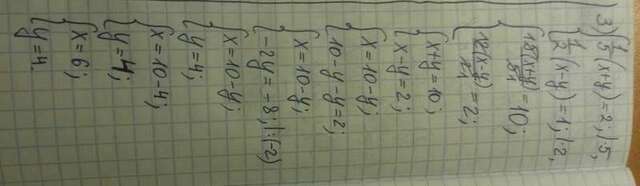 3) { 1/5 (x+y) = 2; |·5,
{ 1/2 (x-y) = 1; |·2,
= 10;
= 2;
{ x+y = 10;
{ x-y = 2;
{ x = 10-y;
{ 10-y-y = 2;
{ x = 10-y;
{ -2y = -8; |:(-2)
{ x = 10-y;
{ y = 4;
{ x = 10-4;
{ y = 4;
{ x = 6;
{ y = 4.